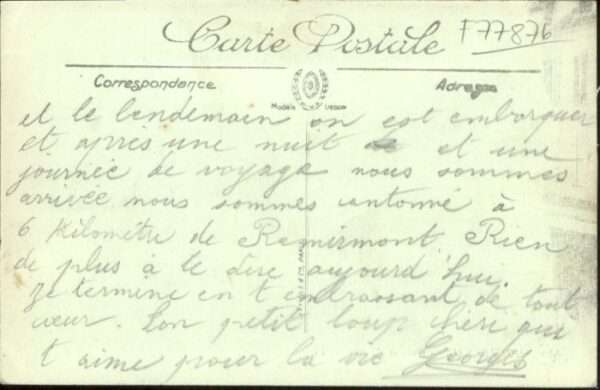 F77876
Carte Postale
Correspondance
Adresse
Modèle Déposé
et le lendemain on est embarquer
et après une nuit et une
journée de voyage nous sommes
arrivée nous sommes cantonné à
6 Kilométre de Remirmont. Rien
de plus à te dire aujourd'hui.
Je termine en t embrassant de tout
cœur. Ton petit loup chéri qui
t aime pour la vie Georges